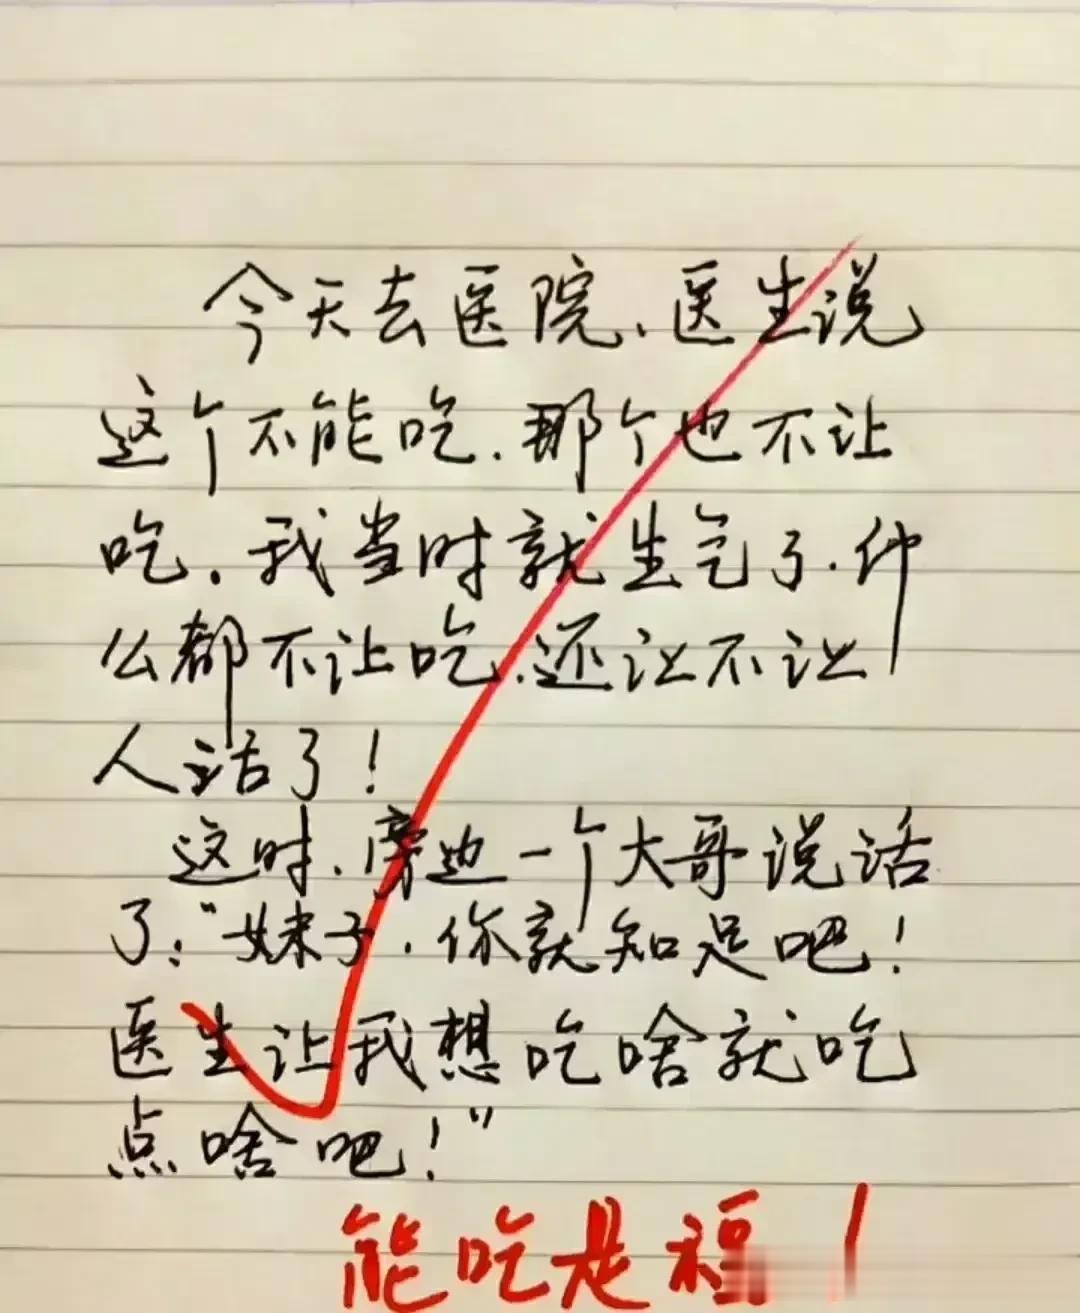 今天去医院、医生说
这个不能吃.那个也不让
吃.我当时就生气了.什
么都不让吃.还让不让
人活了!
这时、旁边一个大哥说话
了:"妹子.你就知足吧!
医生让我想吃啥就吃
点啥吧!"
能吃是福!